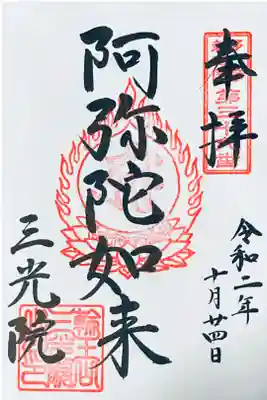 奉拝
令和二年
十月廿四日
阿弥陀如来
三光院